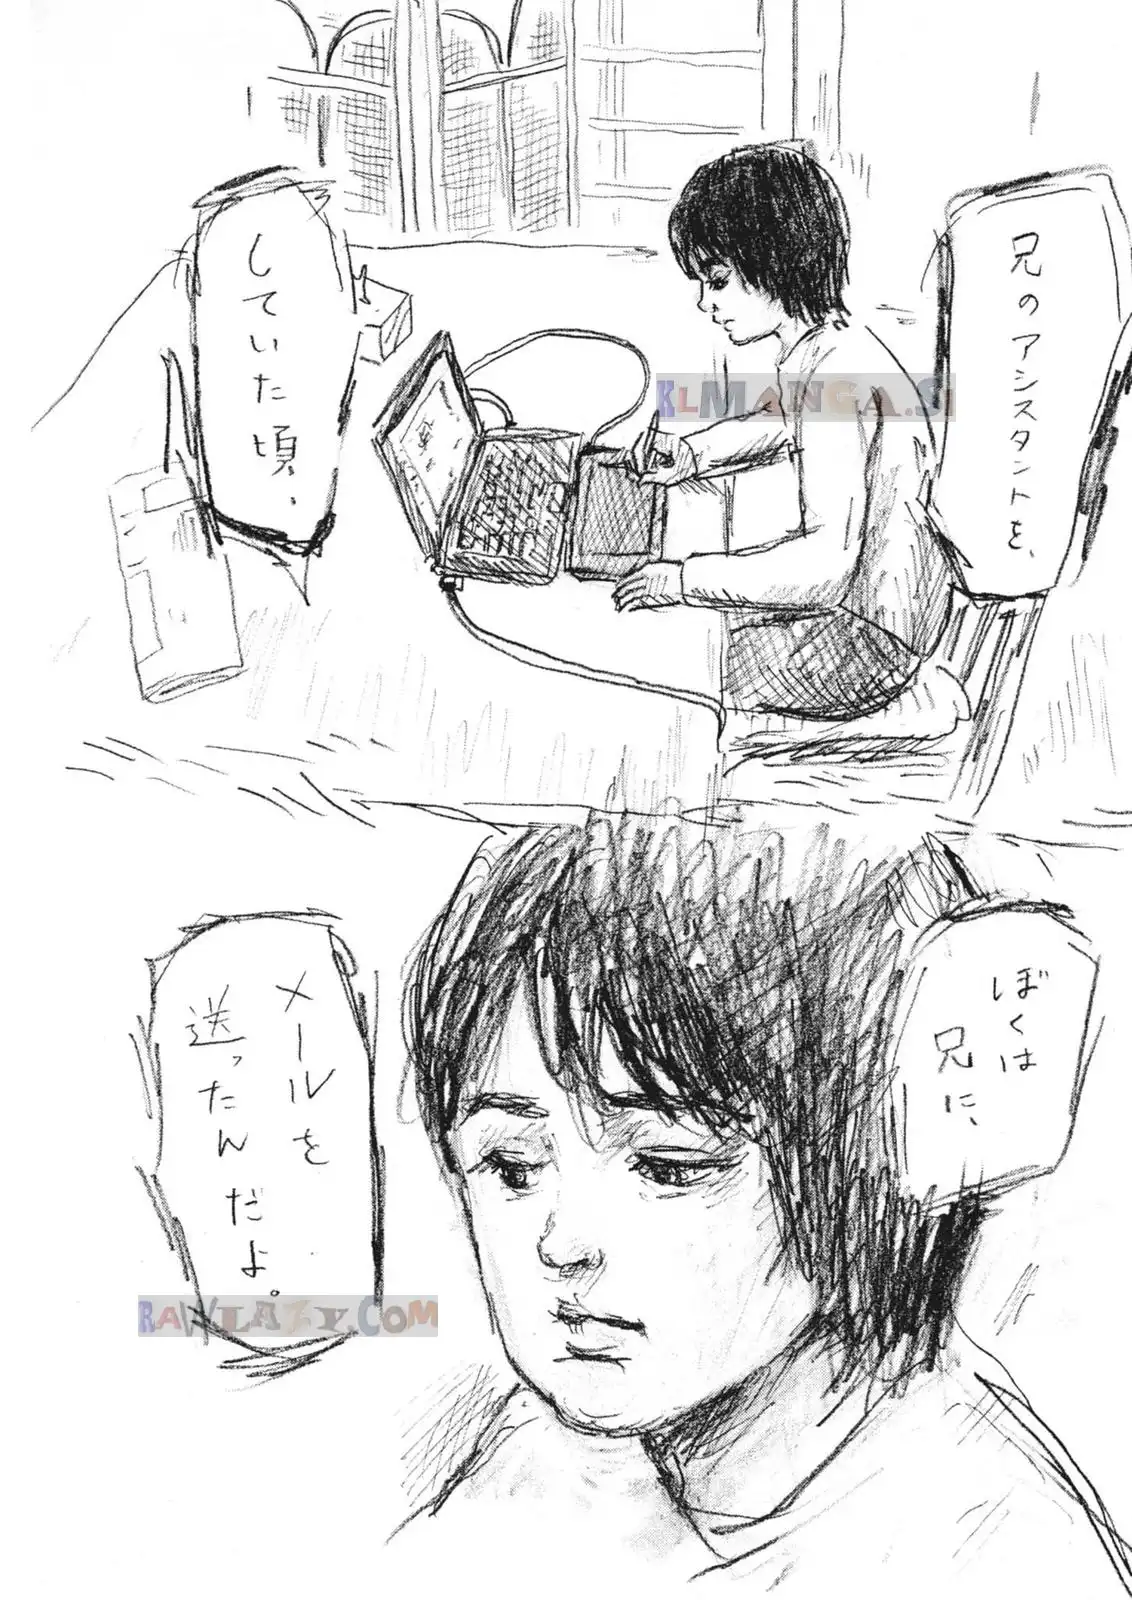 兄のアシスタントを、
していた頃、
ぼくは
兄に、
メールを
送ったんだよ。
KLMANGA.SI
RAWLAZY.COM